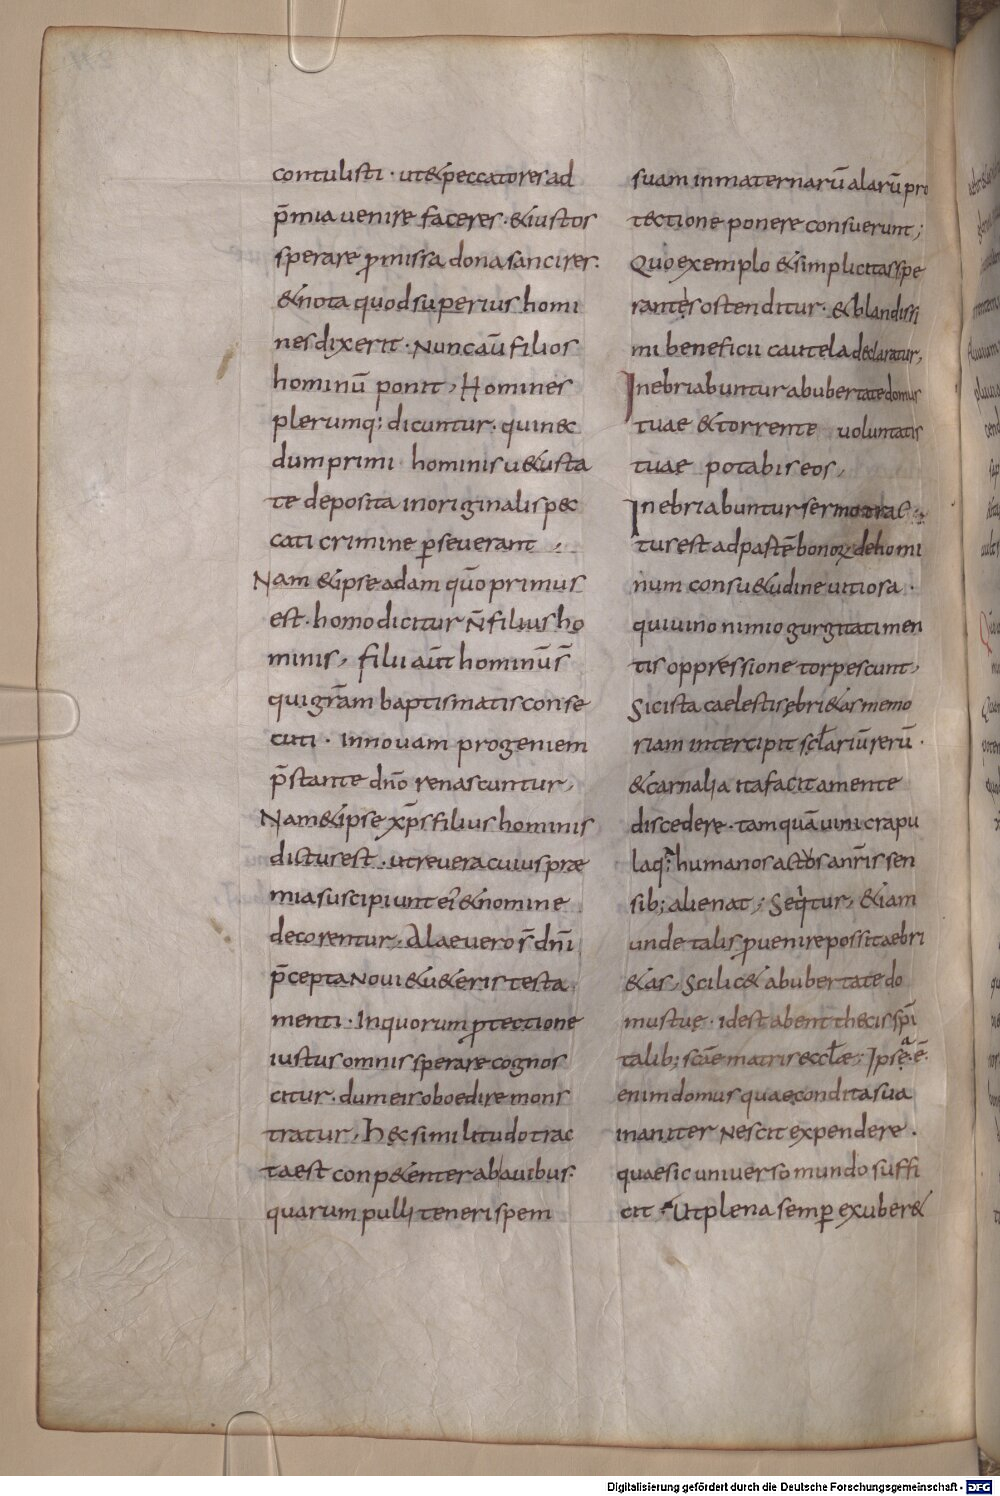 contulisti · ut&peccatores ad
p̄mia uenire faceres · &iustos
sperare ꝓmissa dona sancires.
&nota quod superius homi
nes dixerit · Nunc aūfilios
hominū ponit, Homines
plerumq; dicuntur · qui nec
dum primi hominis u&usta
te deposita in originalis pec
cati crimine ꝑseuerant
Nam &ipse adam qūo primus
est · homo dicitur n̄ filius ho
minis, filii aūt hominū s̄
qui gr̄am baptismatis conse
cuti · Innouam progeniem
p̄stante dn̄o renascuntur,
Nam&ipse xp̄s filius hominis
dictus est · ut reuera cuius præ
mia suscipiunt ei' &nomine
decorentur, Alae uero s̄ dn̄i
p̄cepta Noui &u&eris testa
menti · In quorum ꝓtectione
iustus omnis sperare cognos
citur · dum eis oboedire mons
tratur, Hec similitudo trac
ta est conp&enter ab auibus·
quarum pulli teneri spem
suam in maternarū alarū pro
tectione ponere consuerunt;
Quo exemplo &simplicitas spe
rantes ostenditur · &blandissi
mi beneficii cautela declaratur,
Inebriabuntur ab ubertate domus
tuae &torrente uoluntatis
tuae potabis eos,
Inebriabuntur sermo trac
tus est ad pastē bonoꝝ de homi
num consu&udine uitiosa ·
qui uino nimio gurgitati men
tis oppressione torpescunt,
Sic ista caelestis ebri&as memo
riam intercipit sc̄lariū rerū ·
&carnalia ita facit a mente
discedere · tamquā uini crapu
la q; humanos actos a nr̄is sen
sib; alienat; Seq̇tur, &iam
unde talis ꝓuenire possit aebri
&as, Scilic& ab ubertate do
mus tue · idest abent thecis sp̄i
talib; scāe matris eccl̄æ; Ipsa · ē ·
enim domus quae condita sua
inaniter Nescit expendere ·
quae sic uniuerso mundo suffi
cit · Ut plena semꝑ exuber&
Digitalisierung gefördert durch die Deutsche Forschungsgemeinschaft - DFG